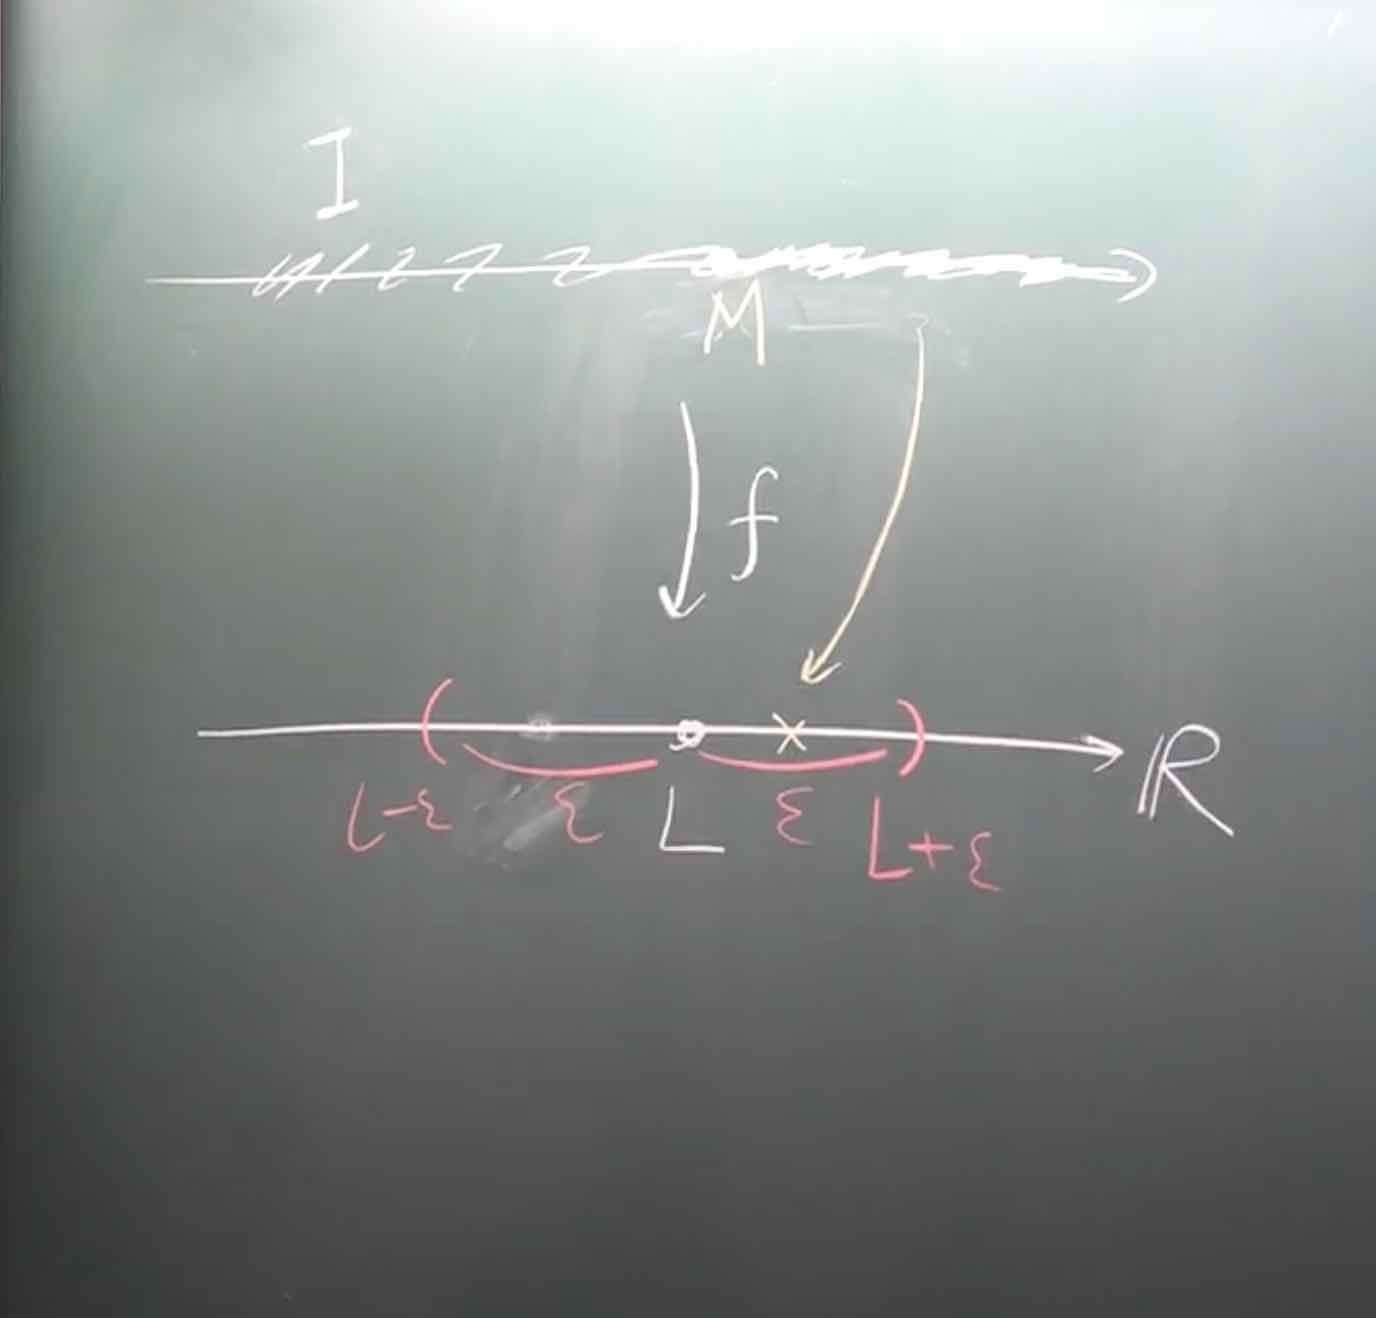 I
M
f
ℝ
L-ε ε L ε L+ε